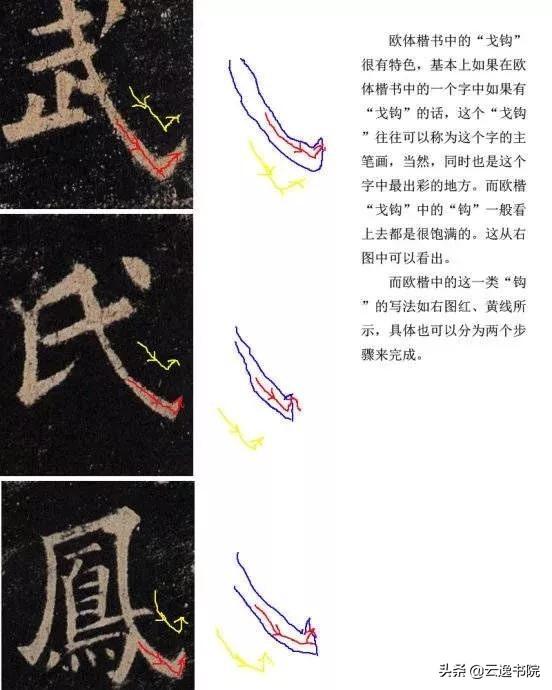 武
氏
鳳
欧体楷书中的“戈钩”
很有特色，基本上如果在欧
体楷书中的一个字中如果有
“戈钩”的话，这个“戈钩
”往往可以称为这个字的主
笔画，当然，同时也是这个
字中最出彩的地方。而欧楷
“戈钩”中的“钩”一般看
上去都是很饱满的。这从右
图中可以看出。
而欧楷中的这一类“钩
”的写法如右图红、黄线所
示，具体也可以分为两个步
骤来完成。
头条@云逸书院